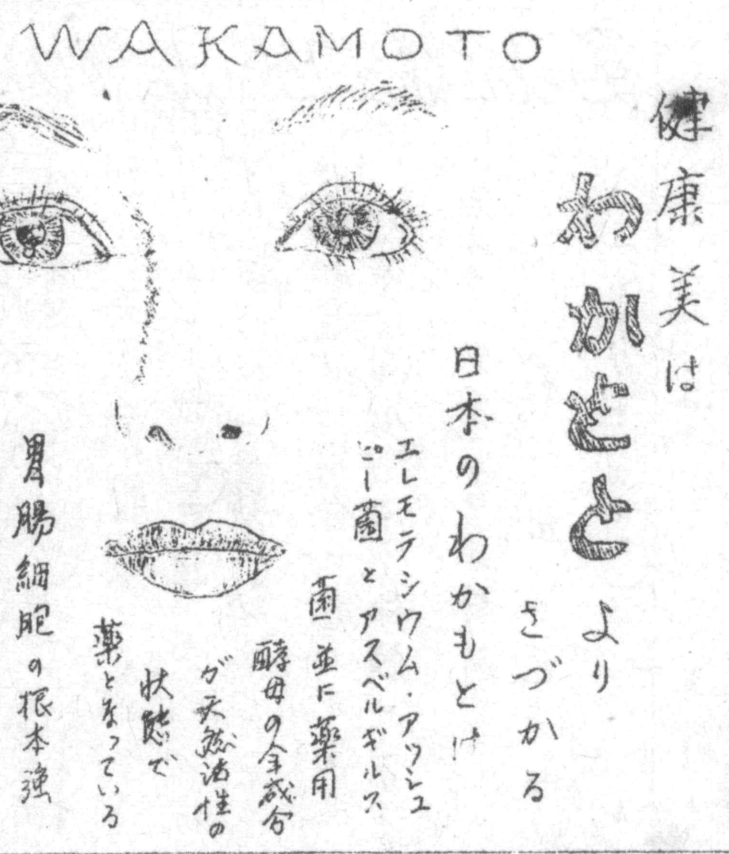 WAKAMOTO
健康美は
わかもと
より
さづかる
日本のわかもとは
エレモテシウム・アッシュ
ビー菌とアスペルギルス
菌並に薬用
酵母の全成分
が天然活性の
状態で
薬となっている
胃腸細胞の根本強